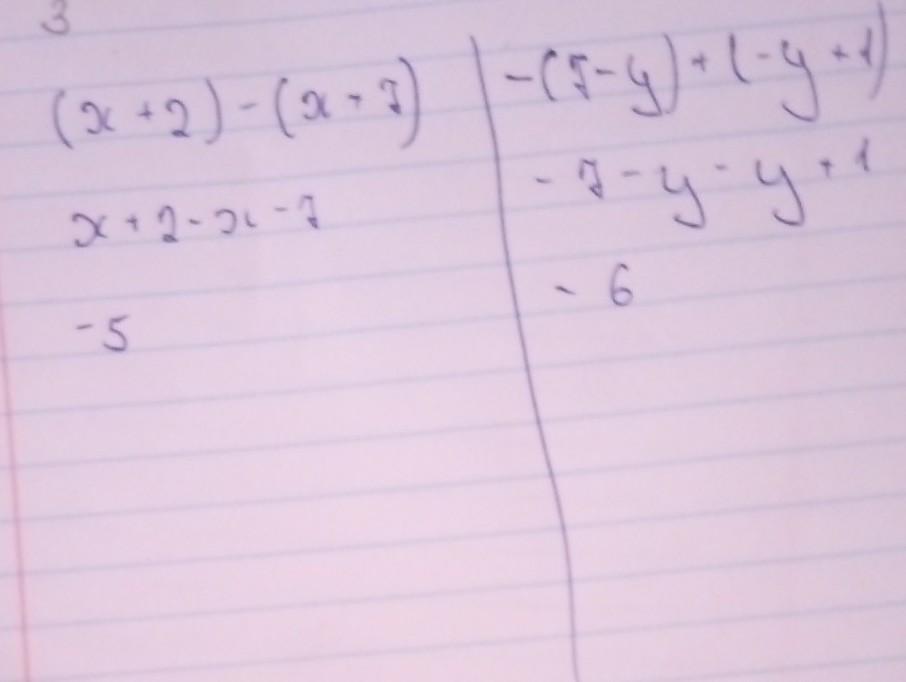 3
(x + 2) - (x + 7)
x + 2 - x - 7
-5
-(7 - y) + (-y + 1)
- 7 - y - y + 1
- 6